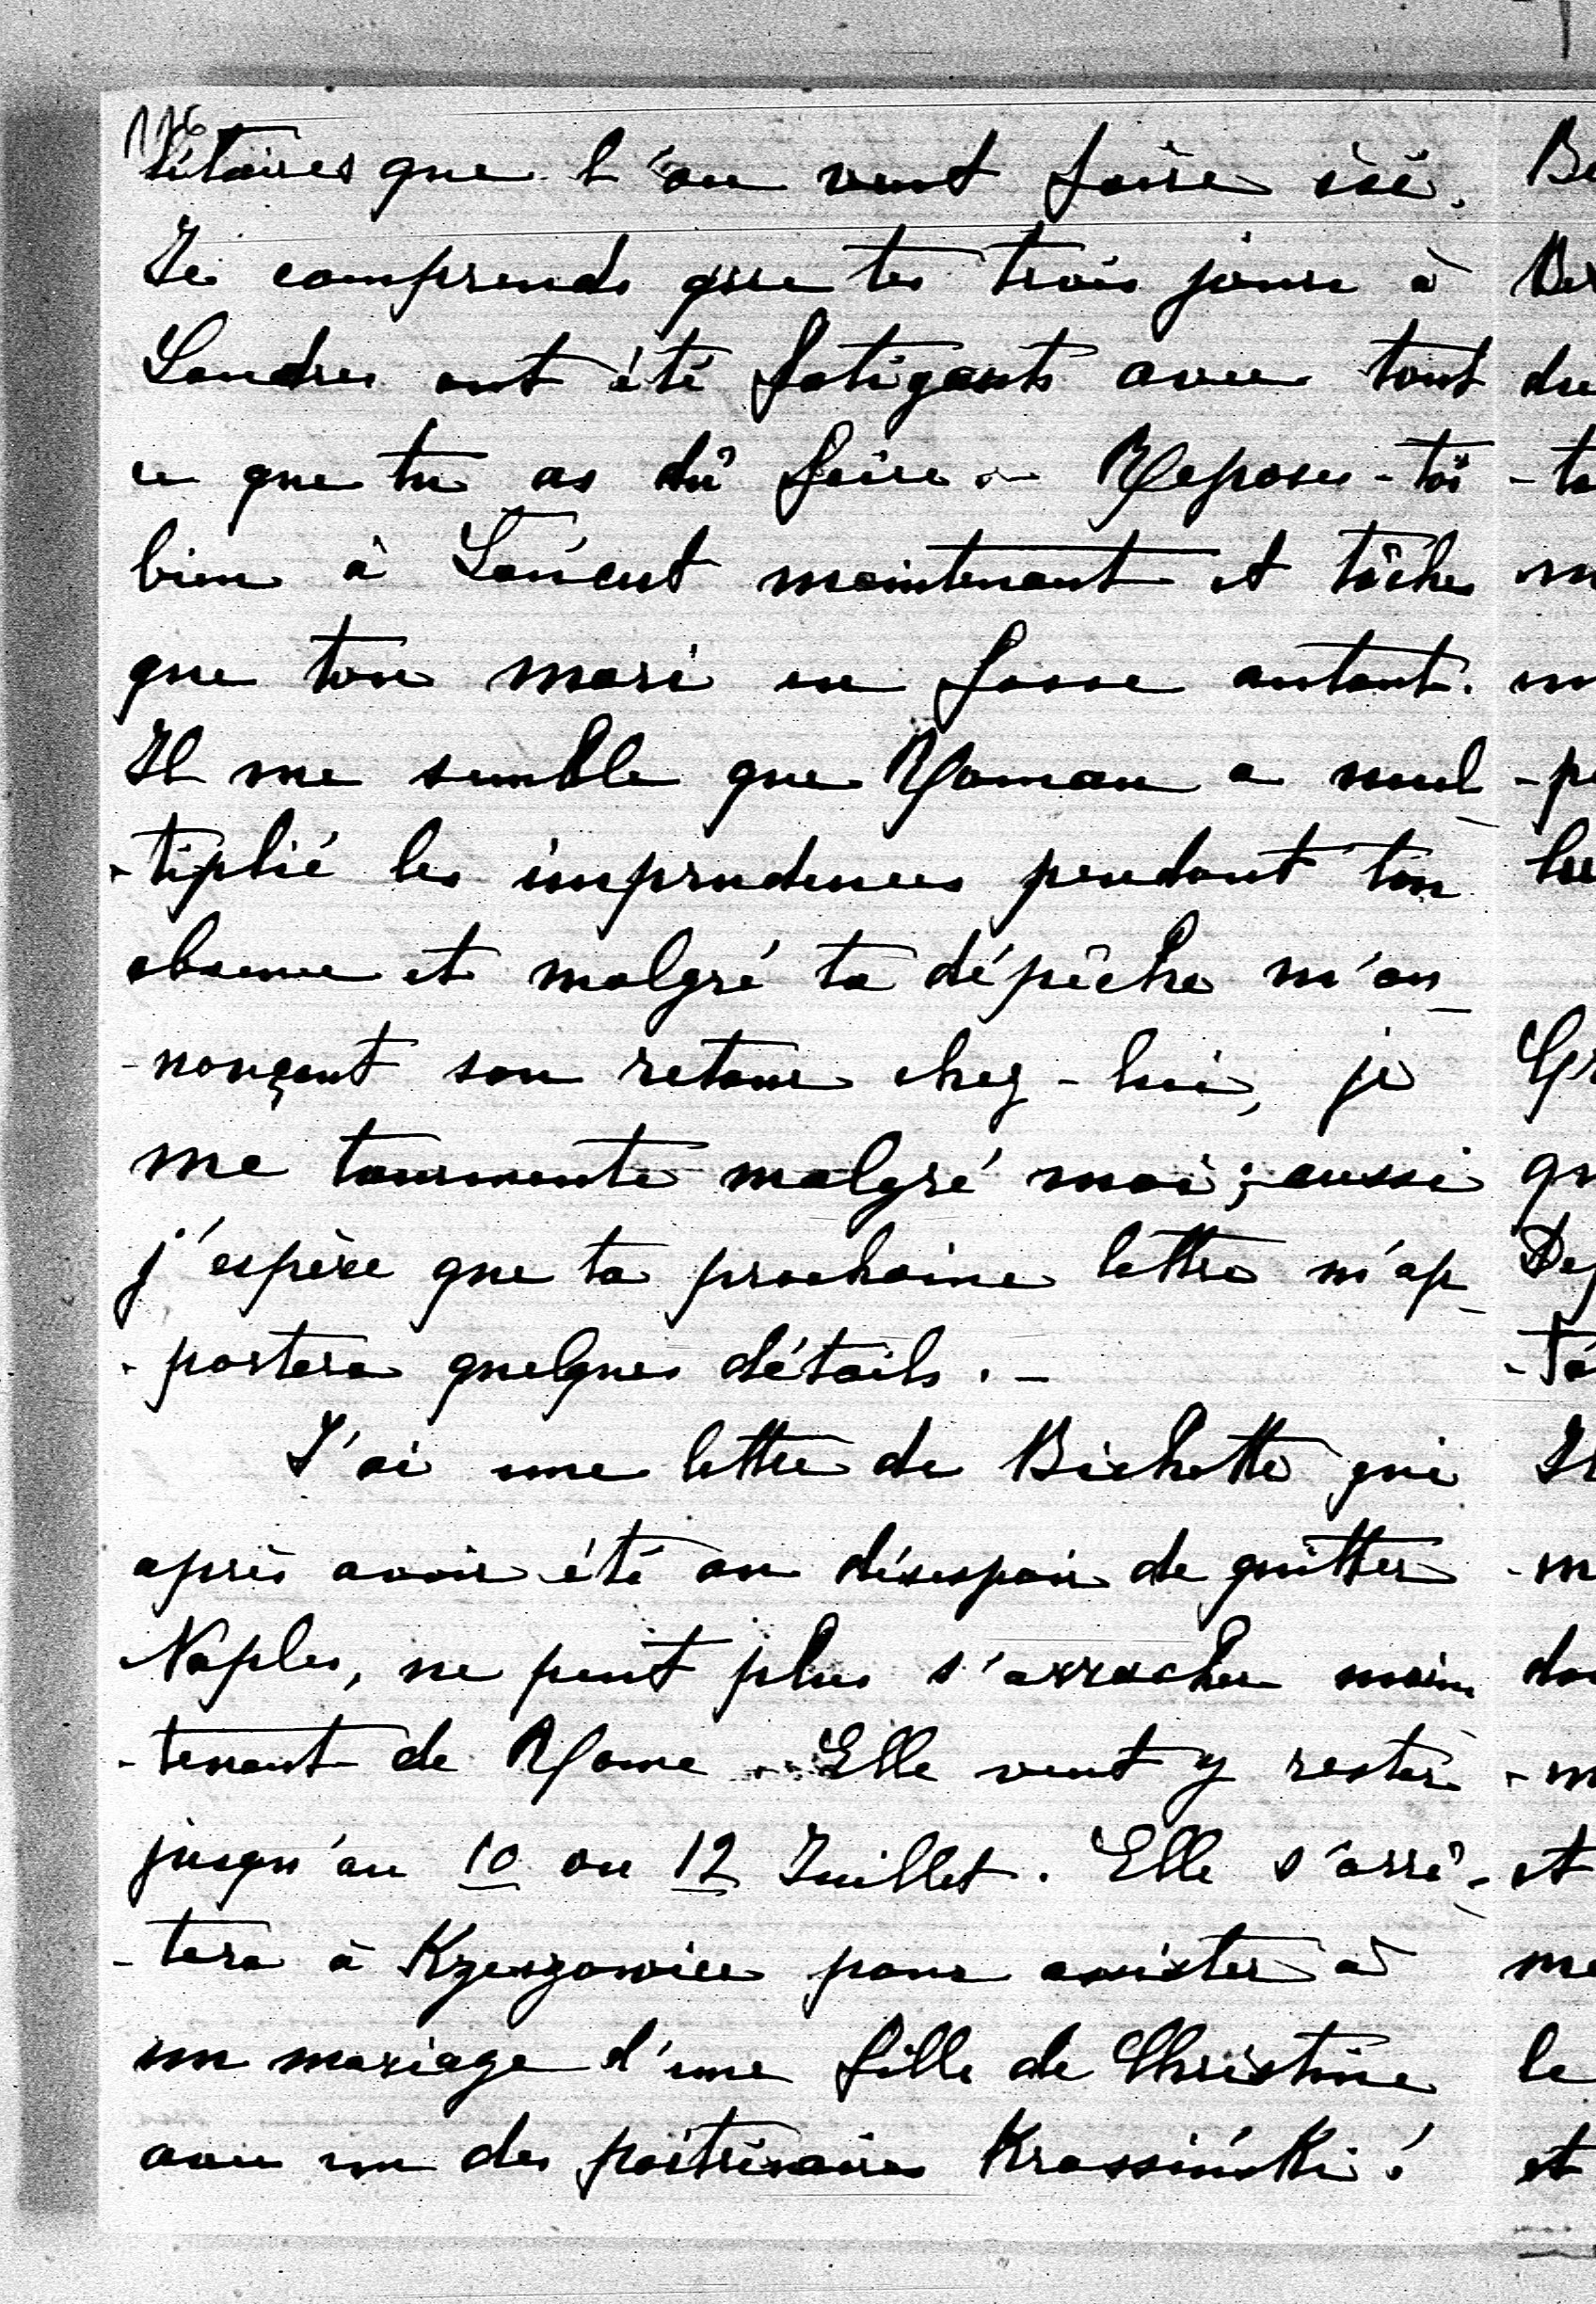 116
litaires que l'on veut faire ici.
Je comprends que tes trois jours à
Londres ont été fatigants avec tout
ce que tu as dû faire. Repose-toi
bien à Łańcut maintenant et tâche
que ton mari en fasse autant.
Il me semble que Roman a mul-
-tiplié les imprudences pendant ton
absence et malgré ta dépêche m'an-
-nonçant son retour chez-lui, je
me tourmente malgré moi; aussi
j'espère que ta prochaine lettre m'ap-
-portera quelques détails. -
J'ai une lettre de Bichette qui
après avoir été au désespoir de quitter
Naples, ne peut plus s'arracher main
-tenant de Rome. Elle veut y rester
jusqu'au 10 ou 12 Juillet. Elle s'arrê-
-tera à Krzeszowice pour assister à
un mariage d'une fille de Christine
avec un des poitrinaires Krasiński!